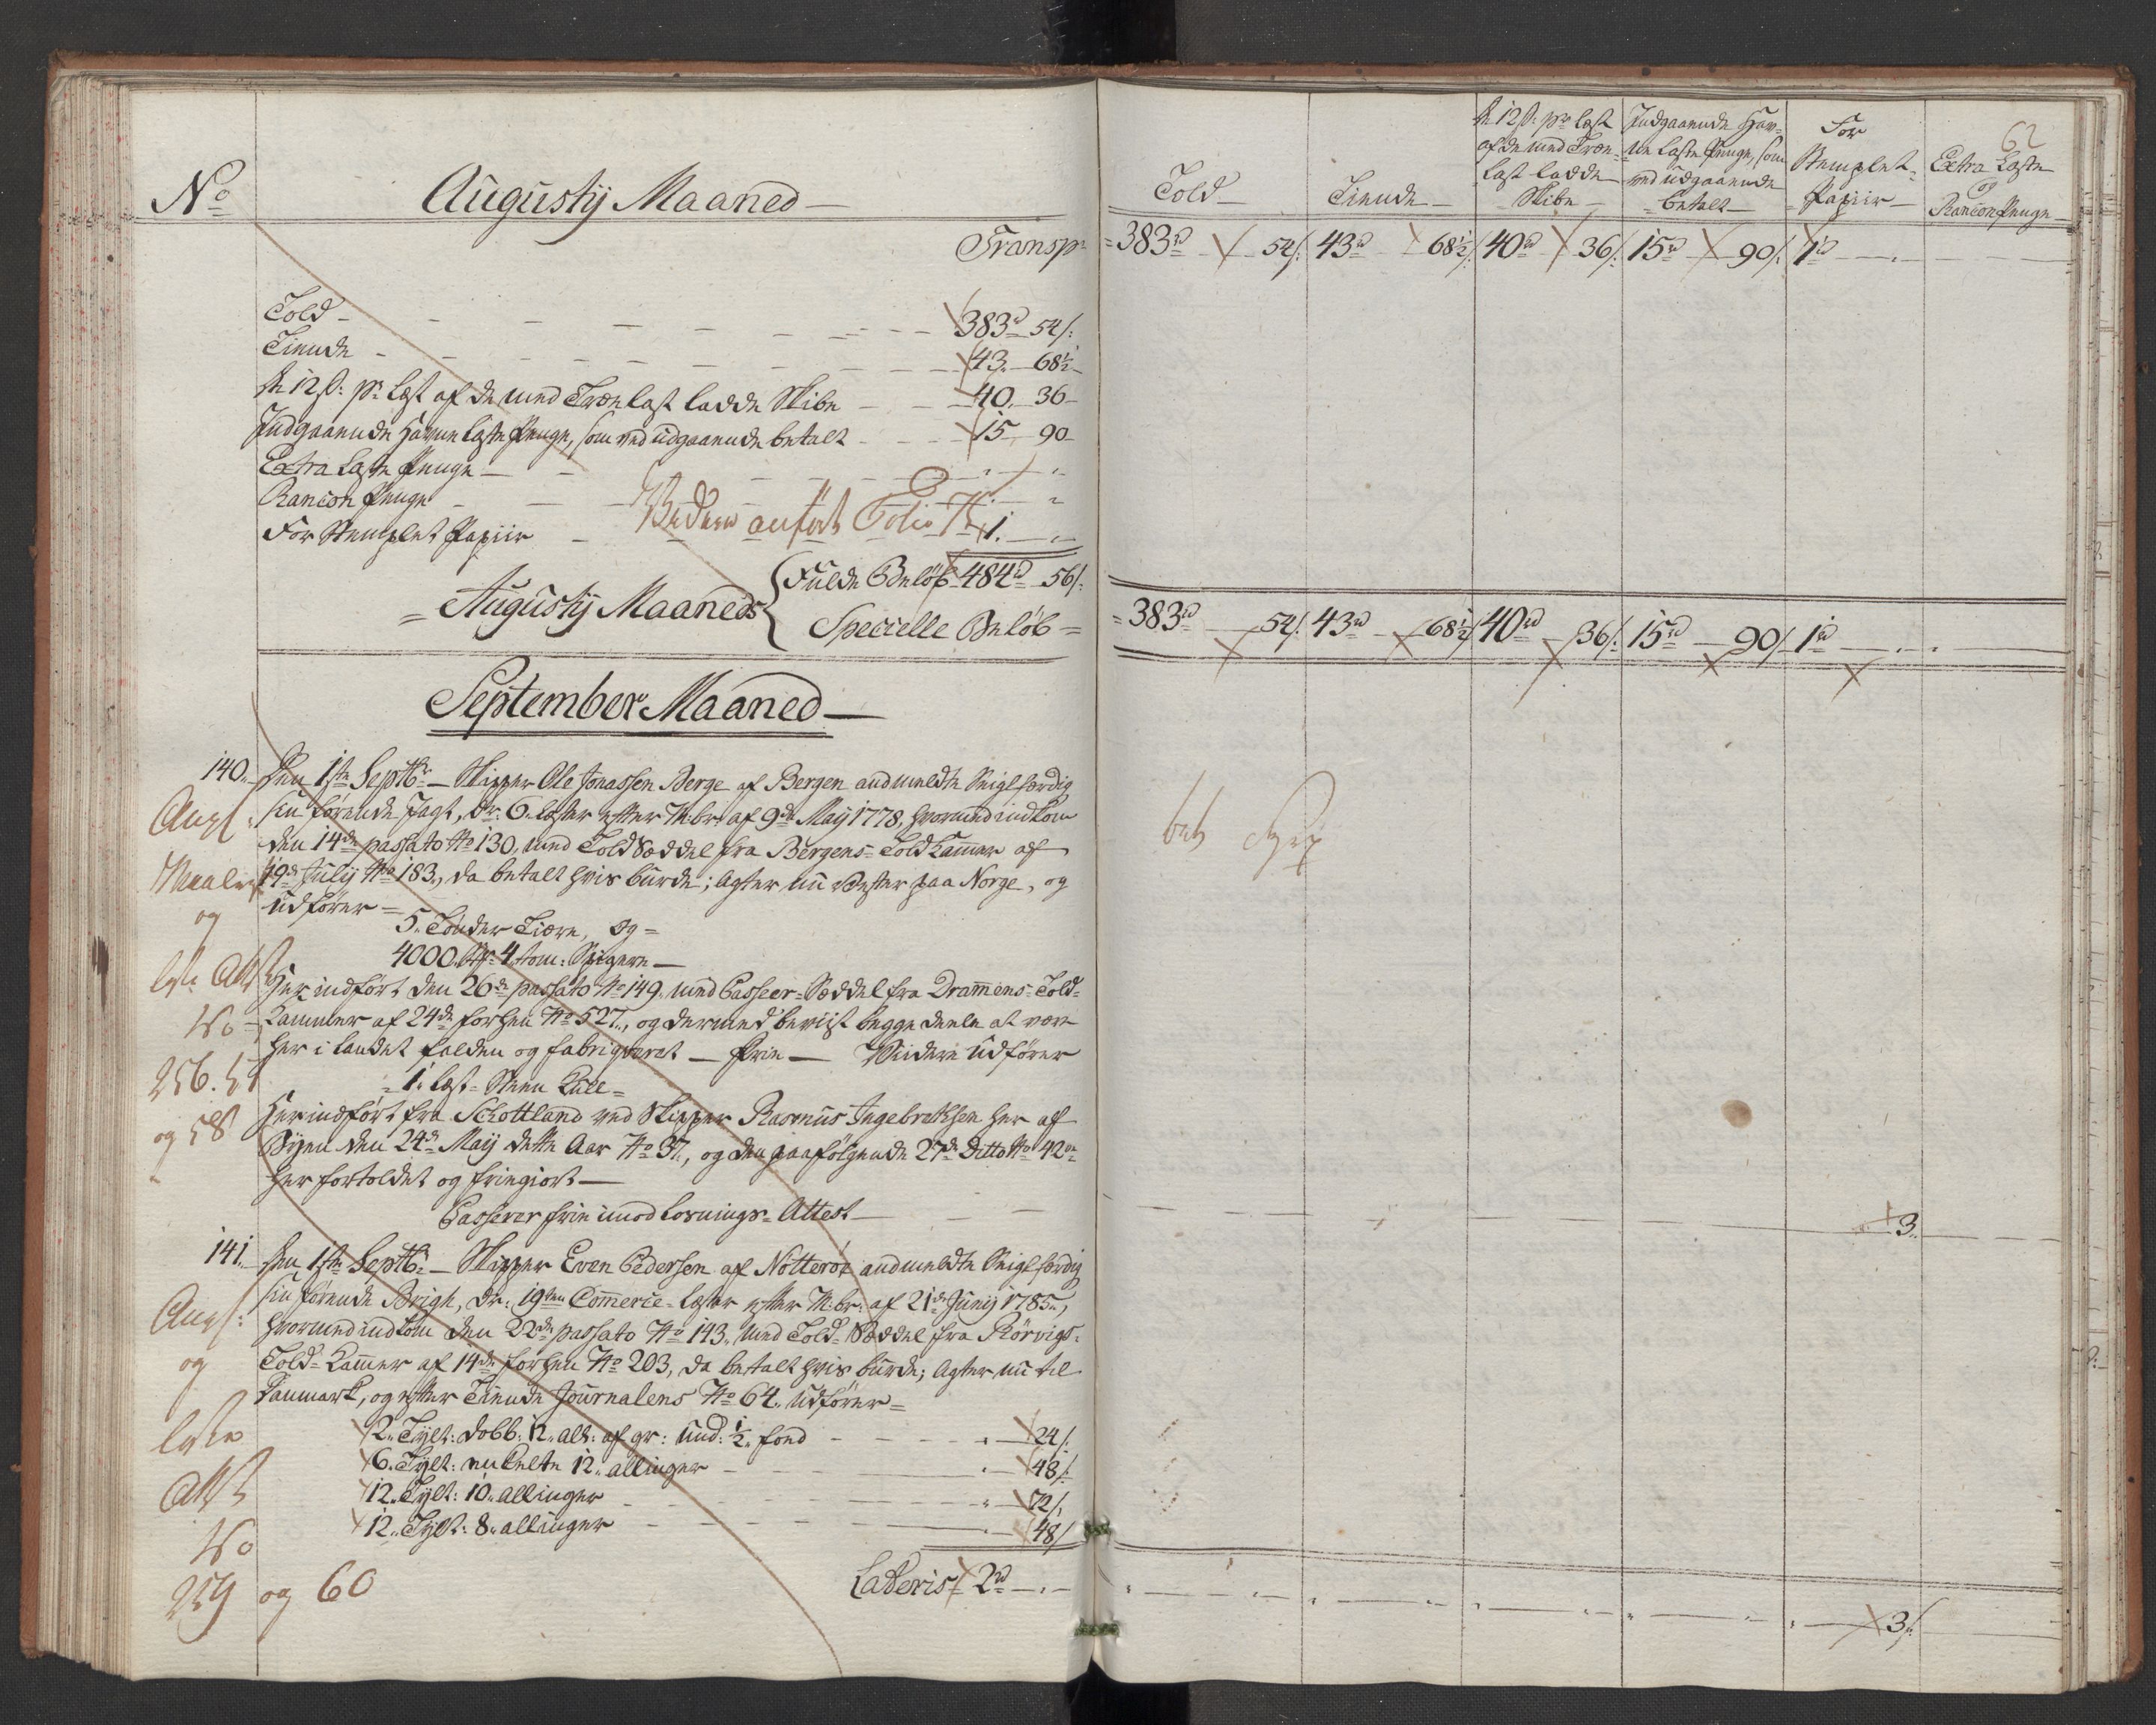 No Augustij Maaned
Transp:
Told 383rd 54s:
Tiende 43 68½
De 12s: pr: Læst af de med Trælast ladde Skibe 40. 36
Indgaaende Havne Læste Penge, som ved udgaaende betalt 15 90
Extra Læste Penge
Rancon Penge
For Stemplet Papiir 1.
Bedres anført Folio
Augustij Maaneds Fulde Beløb 484rd 56s:
Specielle Beløb
September Maaned
140. Den 1ste Septbr: Skipper Ole Jonassen Berge af Bergen andmeldte Seiglfærdig
sin førende Jagt, dr: 6. Læster efter M:br: af 9de Maij 1778, hvormed indkom
den 14de passato No 130. med Told Sæddel fra Bergens Told Kammer af
19de Julij No 183., da betalt hvis burde; Agter nu Vester paa Norge, og
udfører
5. Tønder Tiære, og
4000. St: 4 tom: Spigere
Her indført den 26de passato No 149. med Passeer-Sæddel fra Drammens Told-
Kammer af 24de forhen No 527., og dermed beviist begge deele at være
her i Landet falden og fabriqveret – frie – Viidere udfører
1. Læst Steen Kull
Her indført fra Schottland ved Skipper Rasmus Ingebrethsen her af
Byen den 24de Maij dette Aar No 37., og den paafølgende 27de Ditto No 42
her fortoldet og friegiort
Passerer frie imod Losnings-Attest
141. Den 1ste Septbr: Skipper Even Pedersen af Nøtterøe andmeldte Seiglfærdig
sin førende Brigh, dr: 19 Commerce Læster efter M:br: af 21de Junij 1785.,
hvormed indkom den 22de passato No 143. med Told Sæddel fra Rørvigs
Told-Kammer af 14de forhen No 203, da betalt hvis burde; Agter nu til
Danmark, og efter Tiende Journalens No 64. udfører
2. Tylt: dobb: 12. alt: af gr: und: ½ fod 24s:
6. Tylt: enkelte 12. allinger 48s:
12. Tylt: 10. allinger 72s:
12. Tylt: 8. allinger 48s:
Lateris 2rd
Angs:
og
Att
No
256. 57
og 58
Angs:
og
Att
No
259 og 60
62
Told
Tiende
De 12s: pr: Læst
af de med Træ-
last ladde
Skibe
Indgaaende Hav-
ne Læste Penge, som
ved udgaaende
betalt
For
Stemplet
Papiir
Extra Læste
og
Rancon Penge
383rd 54s: 43rd 68½s: 40rd 36s: 15rd 90s: 1rd
383rd 54s: 43rd 68½s: 40rd 36s: 15rd 90s: 1rd
3.
3s: